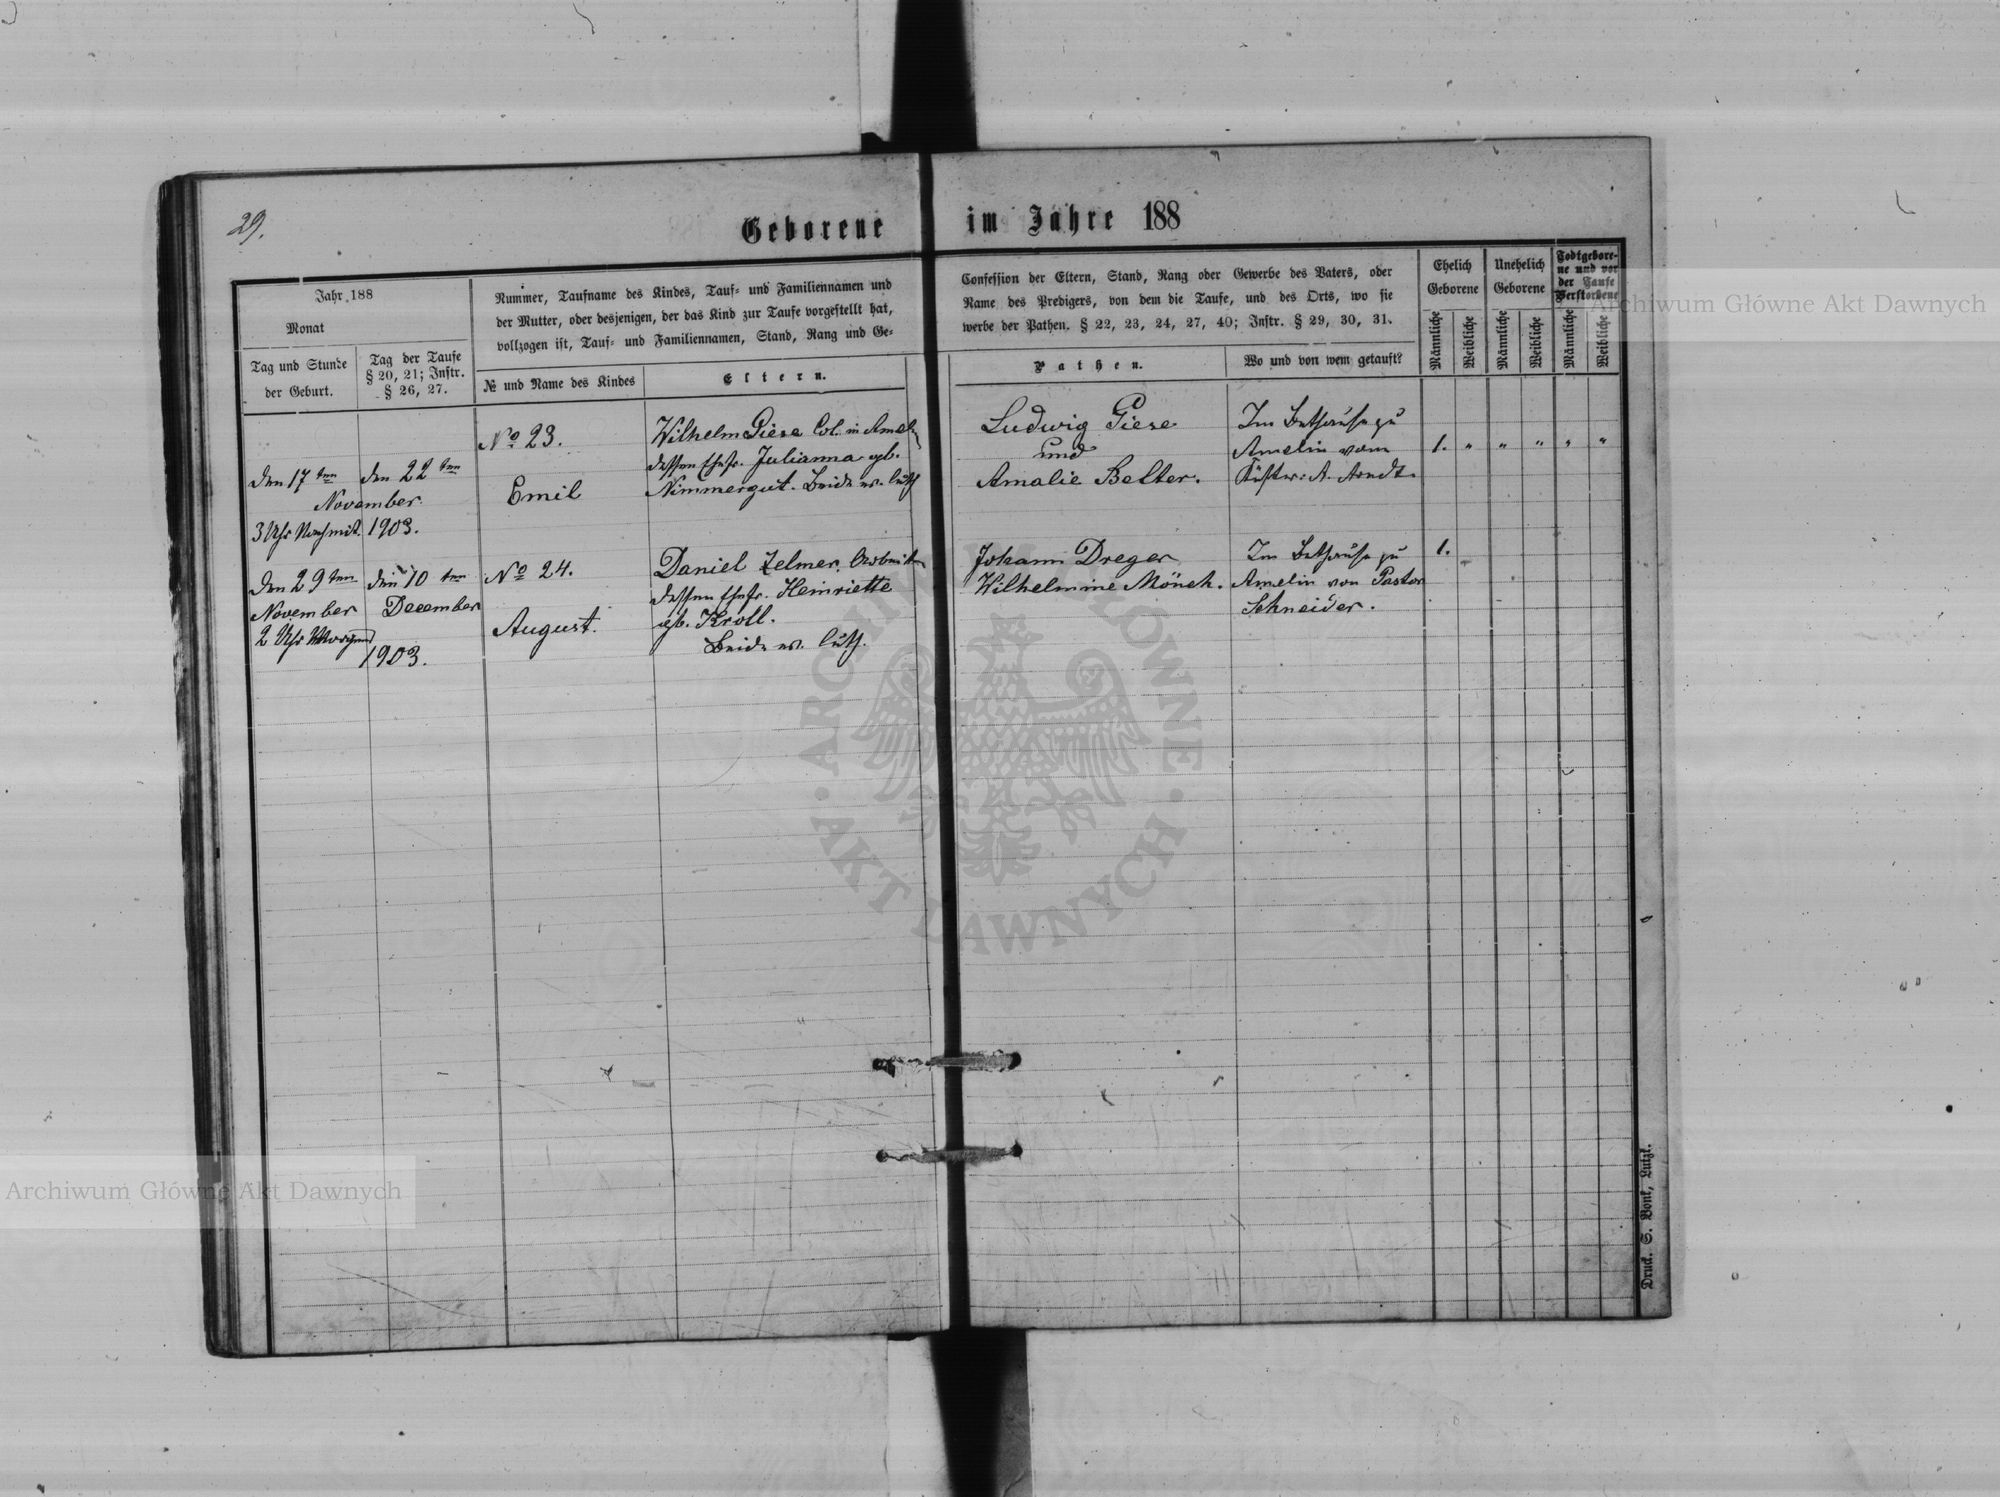 29.
Geborene im Jahre 188
Jahr 188
Monat
Tag und Stunde
der Geburt.
Tag der Taufe
§ 20, 21; Instr.
§ 26, 27.
Nummer, Taufname des Kindes, Tauf- und Familiennamen und
der Mutter, oder desjenigen, der das Kind zur Taufe vorgestellt hat,
vollzogen ist, Tauf- und Familiennamen, Stand, Rang und Ge-
№ und Name des Kindes
Eltern.
Confession der Eltern, Stand, Rang oder Gewerbe des Vaters, oder
Name des Predigers, von dem die Taufe, und des Orts, wo sie
werbe der Pathen. § 22, 23, 24, 27, 40; Instr. § 29, 30, 31.
Pathen.
Wo und von wem getauft?
Ehelich
Geborene
Unehelich
Geborene
Todtgebore-
ne und vor
der Taufe
Verstorbene
Männliche
Weibliche
Männliche
Weibliche
Männliche
Weibliche
den 17ten
November
3 Uhr Nachmit.
den 22ten
1903.
No 23.
Emil
Wilhelm Giese Col. in Amelin
dessen Ehefr. Julianna geb.
Nimmergut. Beide ev. luth
Ludwig Giese
und
Amalie Belter.
Im Bethause zu
Amelin vom
Küster: A. Arndt.
1. " " " " "
den 29ten
November
2 Uhr Morgens
den 10ten
December
1903.
No 24.
August.
Daniel Zelmer, Arbeiter
dessen Ehefr. Heinriette
geb. Kroll.
Beide ev. luth.
Johann Dreger
Wilhelmine Mönch.
Im Bethause zu
Amelin von Pastor
Schneider.
1.
Druck. S. Bonk, Lutzk.
Archiwum Główne Akt Dawnych
Archiwum Główne Akt Dawnych
ARCHIWUM GŁÓWNE · AKT DAWNYCH ·